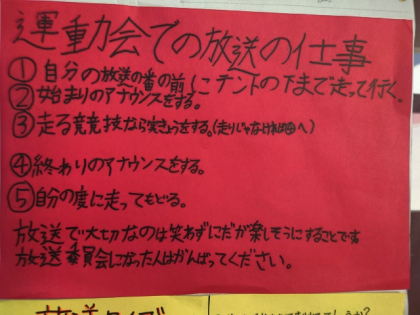 運動会での放送の仕事
①自分の放送の番の前にテントの下まで走って行く。
②始まりのアナウンスをする。
③走る競技なら実きょうをする。(走りじゃなければ④へ)
④終わりのアナウンスをする。
⑤自分の席に走ってもどる。
放送で大切なのは笑わずにだが楽しそうにすることです
放送委員会になった人はがんばってください。
放送クイズ